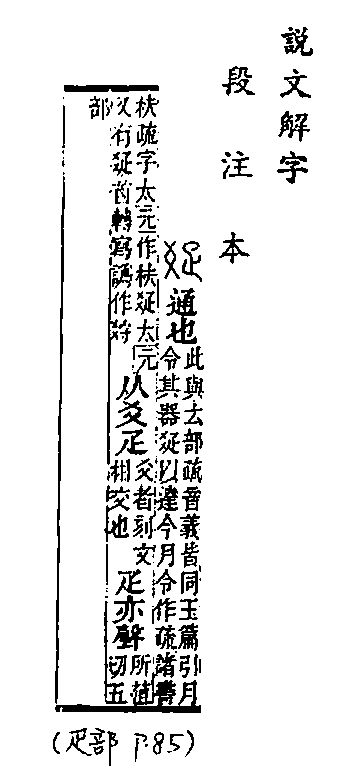 説文解字
段注本
𤕟
通也
此與𠫓部疏音義皆同玉篇引月
令其器𤕟以達今月令作疏諸書
枎疏字太元作枎𤕟太元
又有𤕟首轉寫譌作
从爻疋
爻者刻文
相交也
疋亦聲
所葅
切五
部
(疋部 P.85)